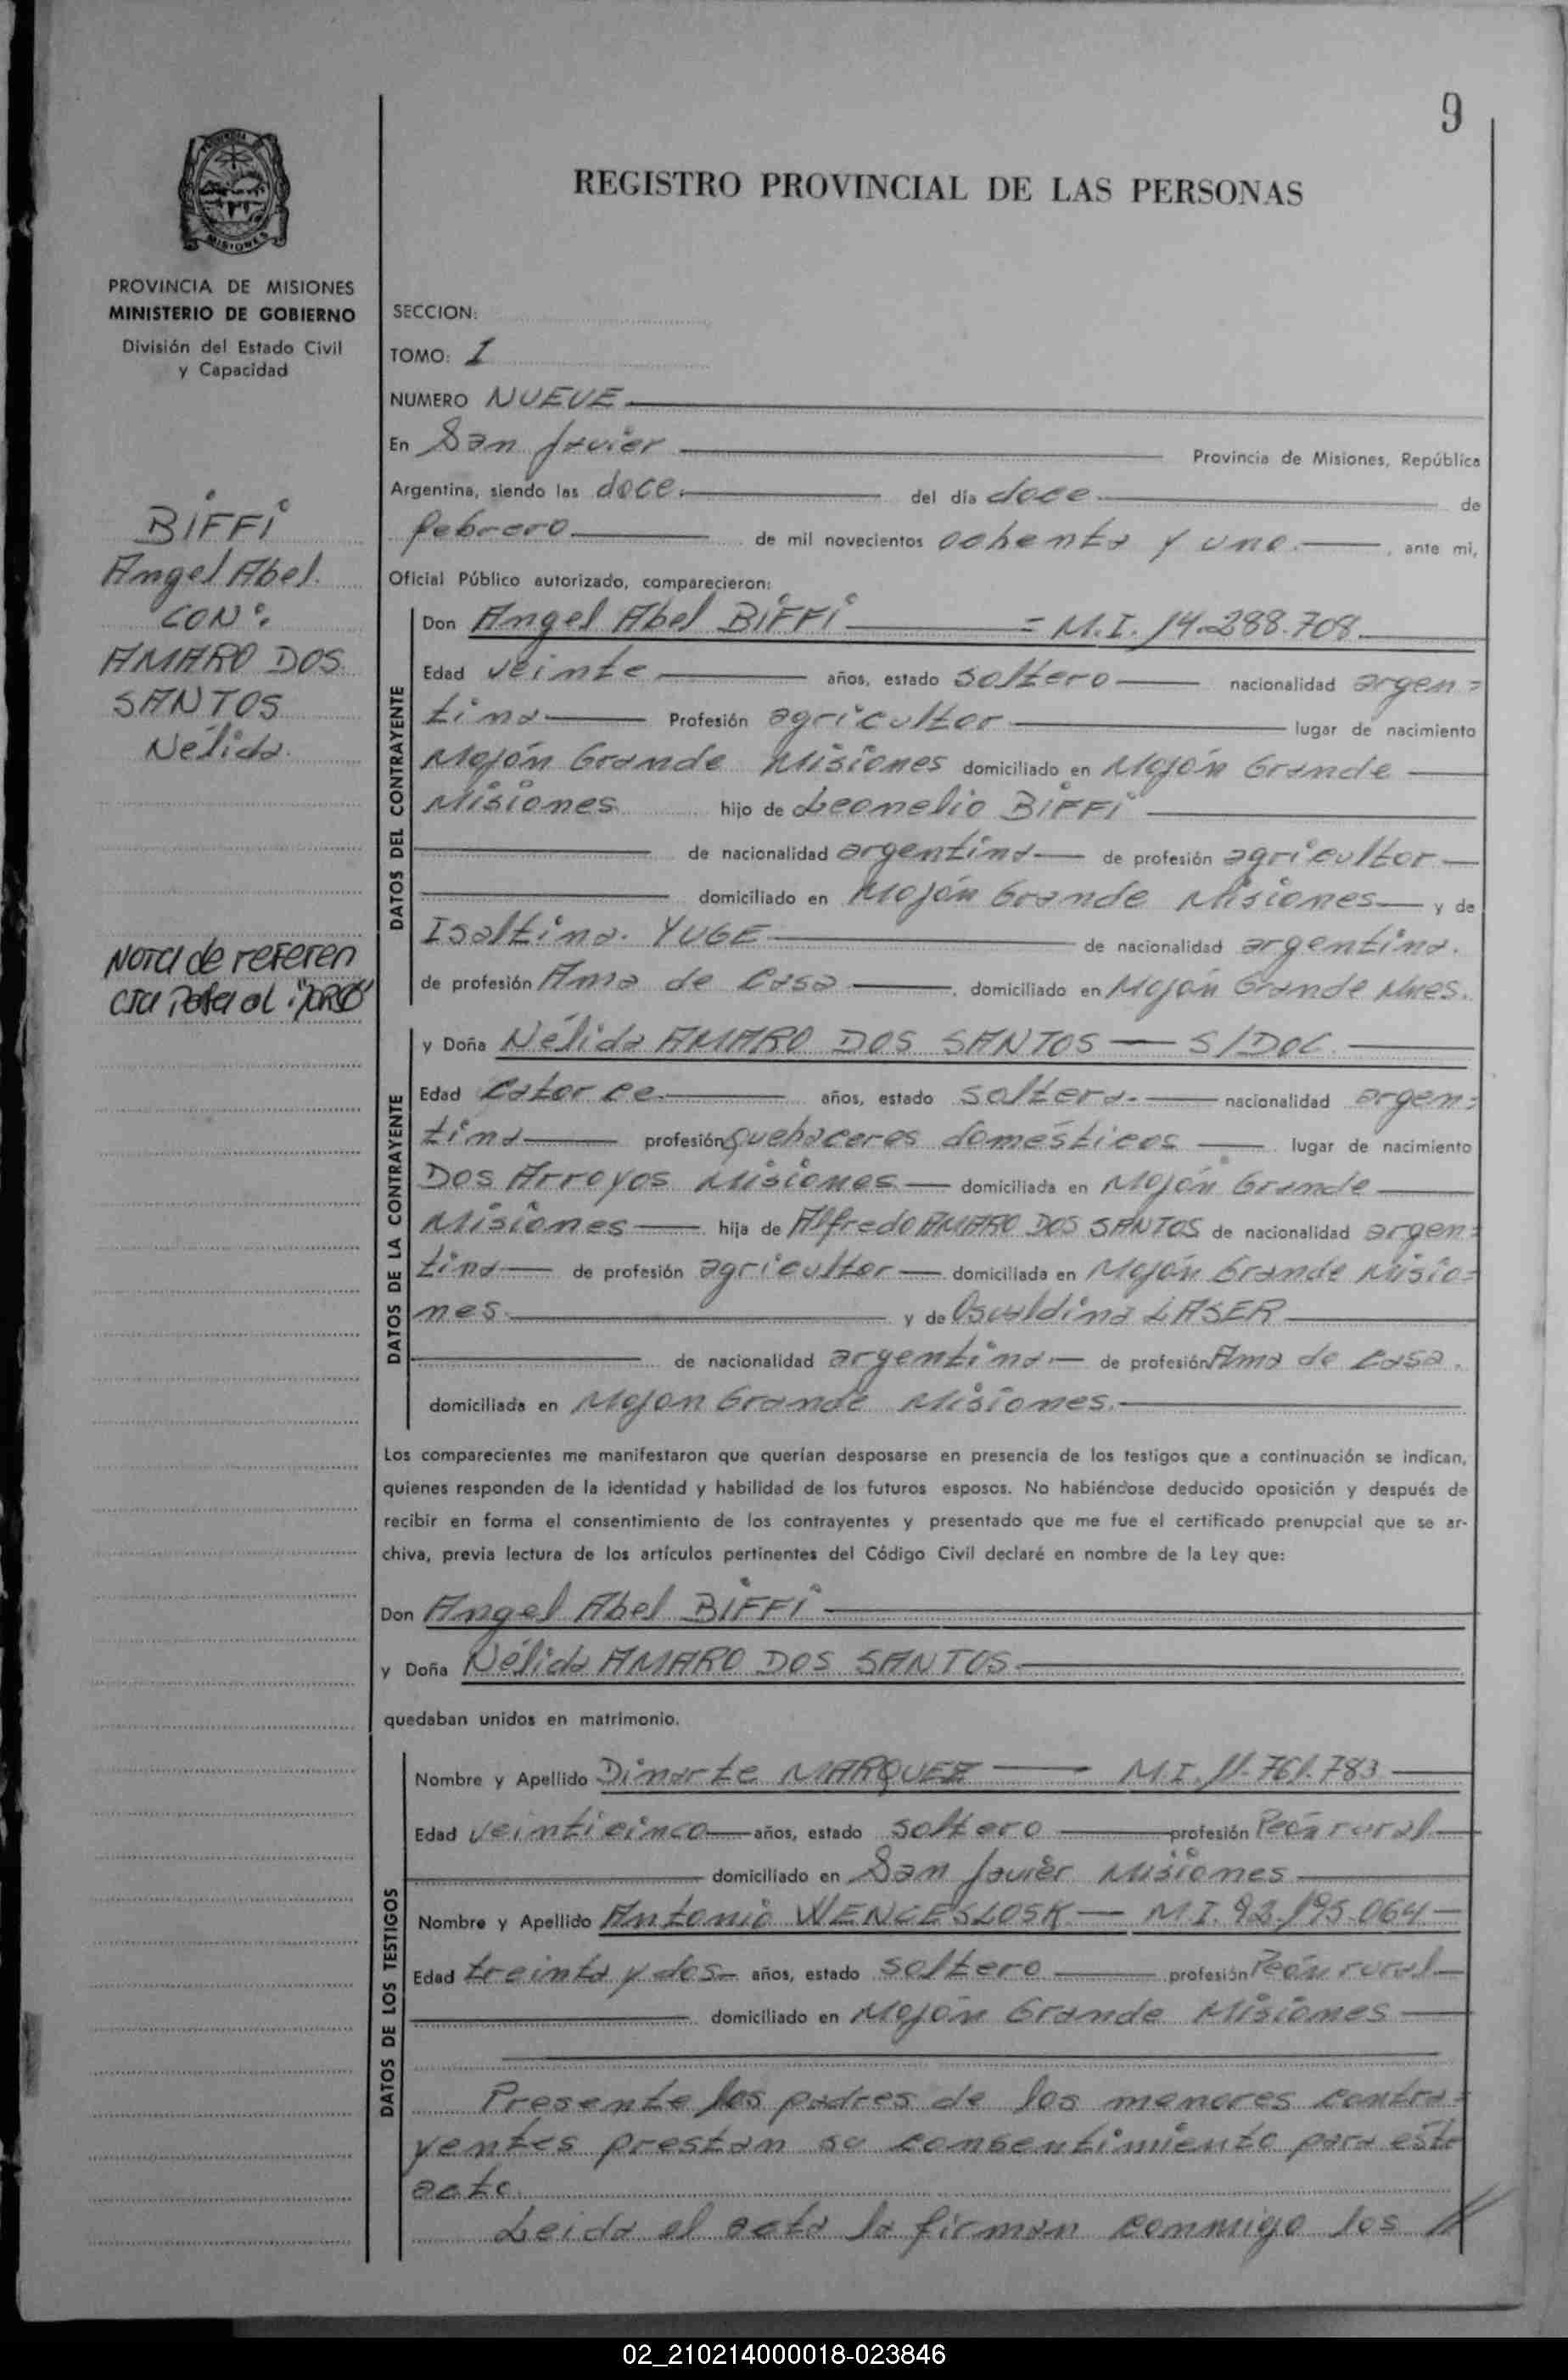 9
REGISTRO PROVINCIAL DE LAS PERSONAS
MISIONES
PROVINCIA DE MISIONES
MINISTERIO DE GOBIERNO
División del Estado Civil
y Capacidad
BIFFI
Angel Abel.
CON:
AMARO DOS
SANTOS
Nélida.
Nota de referen
cia Pasa al
SECCION:
TOMO: I
NUMERO NUEVE
En San Javier Provincia de Misiones, República
Argentina, siendo las doce. del día doce de
febrero de mil novecientos ochenta y uno. , ante mi,
Oficial Público autorizado, comparecieron:
DATOS DEL CONTRAYENTE
Don Angel Abel BIFFI = M.I. 14.288.708.
Edad veinte años, estado soltero nacionalidad argen=
tina Profesión agricultor lugar de nacimiento
Mojón Grande Misiones domiciliado en Mojón Grande
Misiones hijo de Leonelio BIFFI
de nacionalidad argentina de profesión agricultor
domiciliado en Mojón Grande Misiones y de
Isaltina. YUGE de nacionalidad argentina.
de profesión Ama de Casa , domiciliado en Mojón Grande Mnes.
DATOS DE LA CONTRAYENTE
y Doña Nélida AMARO DOS SANTOS — S/DOC.
Edad catorce. años, estado soltera. nacionalidad argen=
tina profesión quehaceres domésticos lugar de nacimiento
Dos Arroyos Misiones domiciliada en Mojón Grande
Misiones hija de Alfredo AMARO DOS SANTOS de nacionalidad argen=
tina de profesión agricultor domiciliada en Mojón Grande Misio=
nes. y de Osvaldina LASER
de nacionalidad argentina. de profesión Ama de Casa.
domiciliada en Mojon Grande Misiones.
Los comparecientes me manifestaron que querían desposarse en presencia de los testigos que a continuación se indican,
quienes responden de la identidad y habilidad de los futuros esposos. No habiéndose deducido oposición y después de
recibir en forma el consentimiento de los contrayentes y presentado que me fue el certificado prenupcial que se ar-
chiva, previa lectura de los artículos pertinentes del Código Civil declaré en nombre de la Ley que:
Don Angel Abel BIFFI
y Doña Nélida AMARO DOS SANTOS.
quedaban unidos en matrimonio.
DATOS DE LOS TESTIGOS
Nombre y Apellido Dinarte MARQUEZ — M.I. 11.761.783
Edad veinticinco años, estado soltero profesión Peón rural
domiciliado en San Javier Misiones
Nombre y Apellido Antonio WENCESLOSK — M.I. 92.195.064
Edad treinta y dos años, estado soltero profesión Peón rural
domiciliado en Mojón Grande Misiones
Presente los padres de los menores contra=
yentes prestan su consentimiento para este
acto.
Leida el acta la firman conmigo los //
02_210214000018-023846